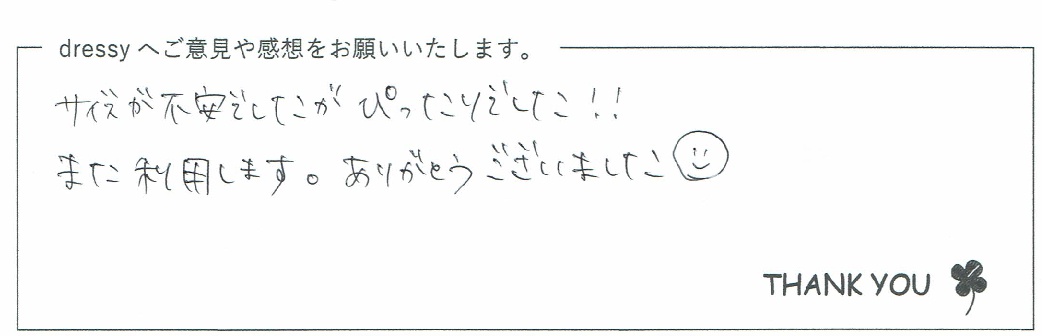 dressy へご意見や感想をお願いいたします。
サイズが不安でしたが ぴったりでした!!
また利用します。ありがとうございました
THANK YOU